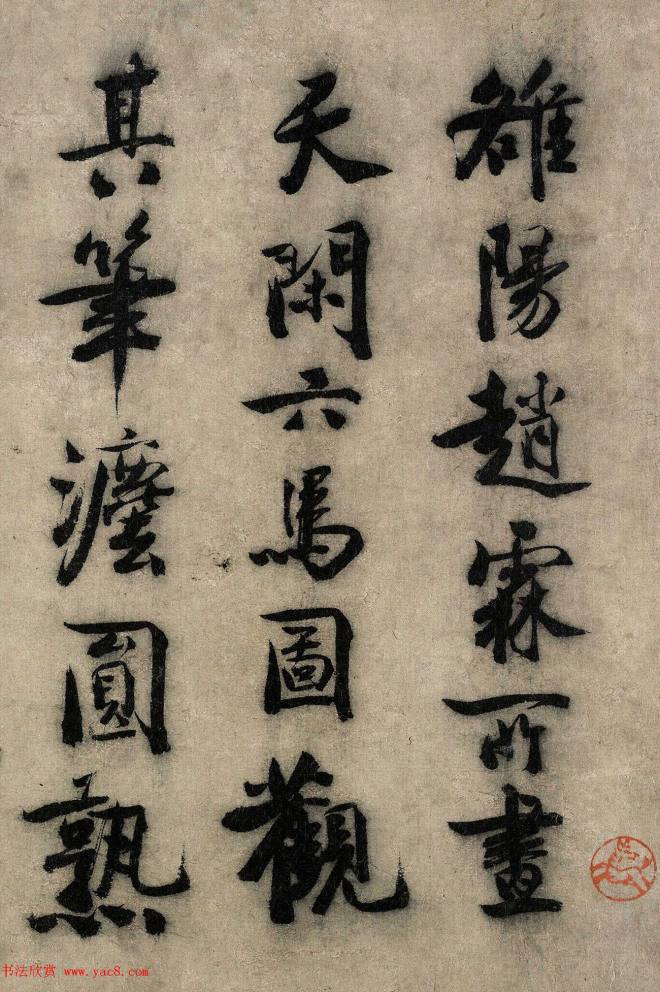 雒陽趙霖所畫
天閑六馬圖觀
其筆灋圓熟
书法欣赏 www.yac8.com